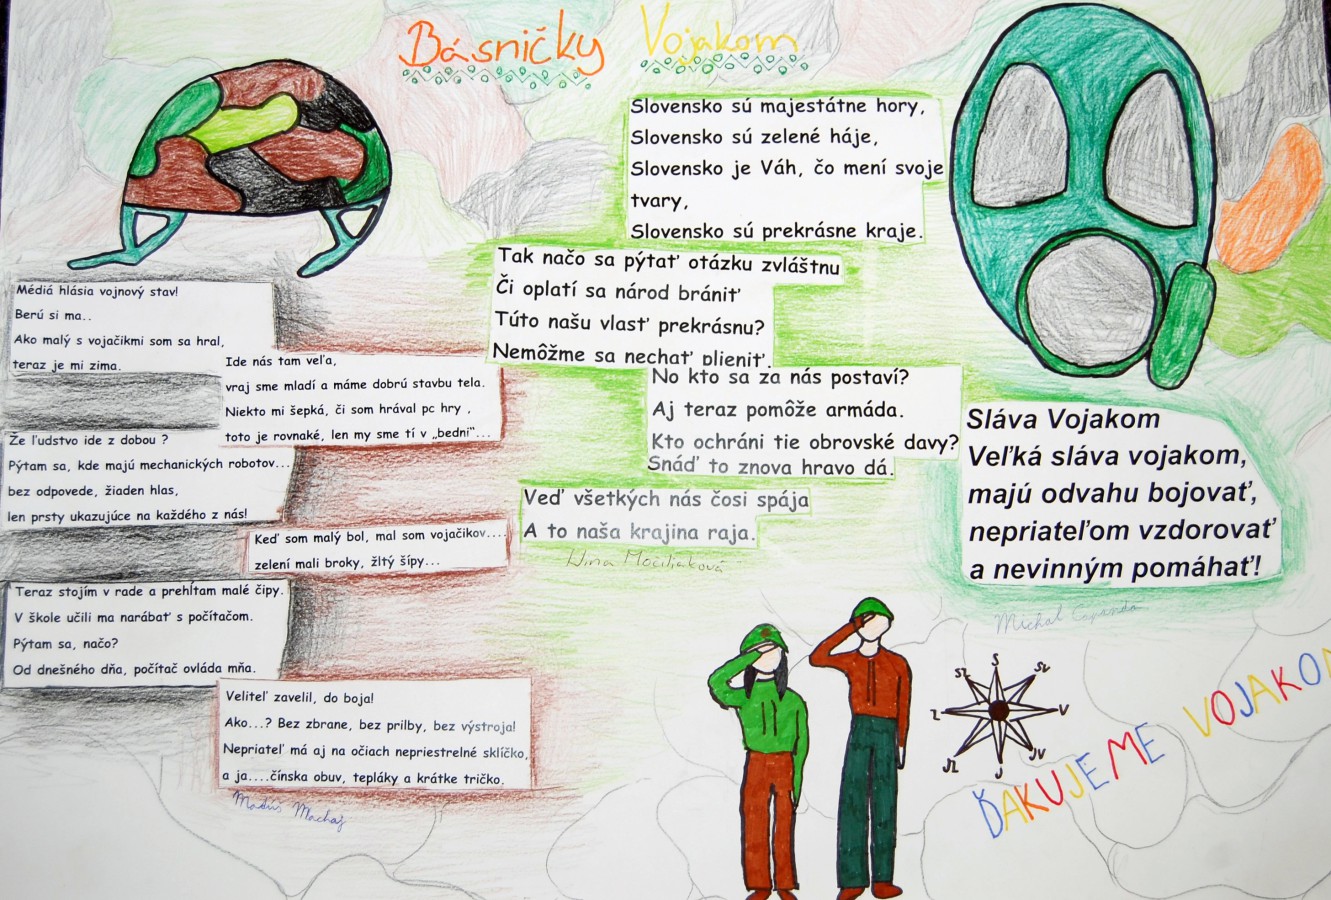 Básničky Vojakom
Médiá hlásia vojnový stav!
Berú si ma..
Ako malý s vojačikmi som sa hral,
teraz je mi zima.
Ide nás tam veľa,
vraj sme mladí a máme dobrú stavbu tela.
Niekto mi šepká, či som hrával pc hry ,
toto je rovnaké, len my sme tí v „bedni“...
Že ľudstvo ide z dobou ?
Pýtam sa, kde majú mechanických robotov...
bez odpovede, žiaden hlas,
len prsty ukazujúce na každého z nás!
Keď som malý bol, mal som vojačikov....
zelení mali broky, žltý šípy...
Teraz stojím v rade a prehĺtam malé čipy.
V škole učili ma narábať s počítačom.
Pýtam sa, načo?
Od dnešného dňa, počítač ovláda mňa.
Veliteľ zavelil, do boja!
Ako...? Bez zbrane, bez prilby, bez výstroja!
Nepriateľ má aj na očiach nepriestrelné sklíčko,
a ja....čínska obuv, tepláky a krátke tričko.
Machaj
Slovensko sú majestátne hory,
Slovensko sú zelené háje,
Slovensko je Váh, čo mení svoje
tvary,
Slovensko sú prekrásne kraje.
Tak načo sa pýtať otázku zvláštnu
Či oplatí sa národ brániť
Túto našu vlasť prekrásnu?
Nemôžme sa nechať plieniť.
No kto sa za nás postaví?
Aj teraz pomôže armáda.
Kto ochráni tie obrovské davy?
Snáď to znova hravo dá.
Veď všetkých nás čosi spája
A to naša krajina raja.
Sláva Vojakom
Veľká sláva vojakom,
majú odvahu bojovať,
nepriateľom vzdorovať
a nevinným pomáhať!
Michal
S
SZ
SV
Z
V
JZ
JV
J
ĎAKUJEME VOJAKOM